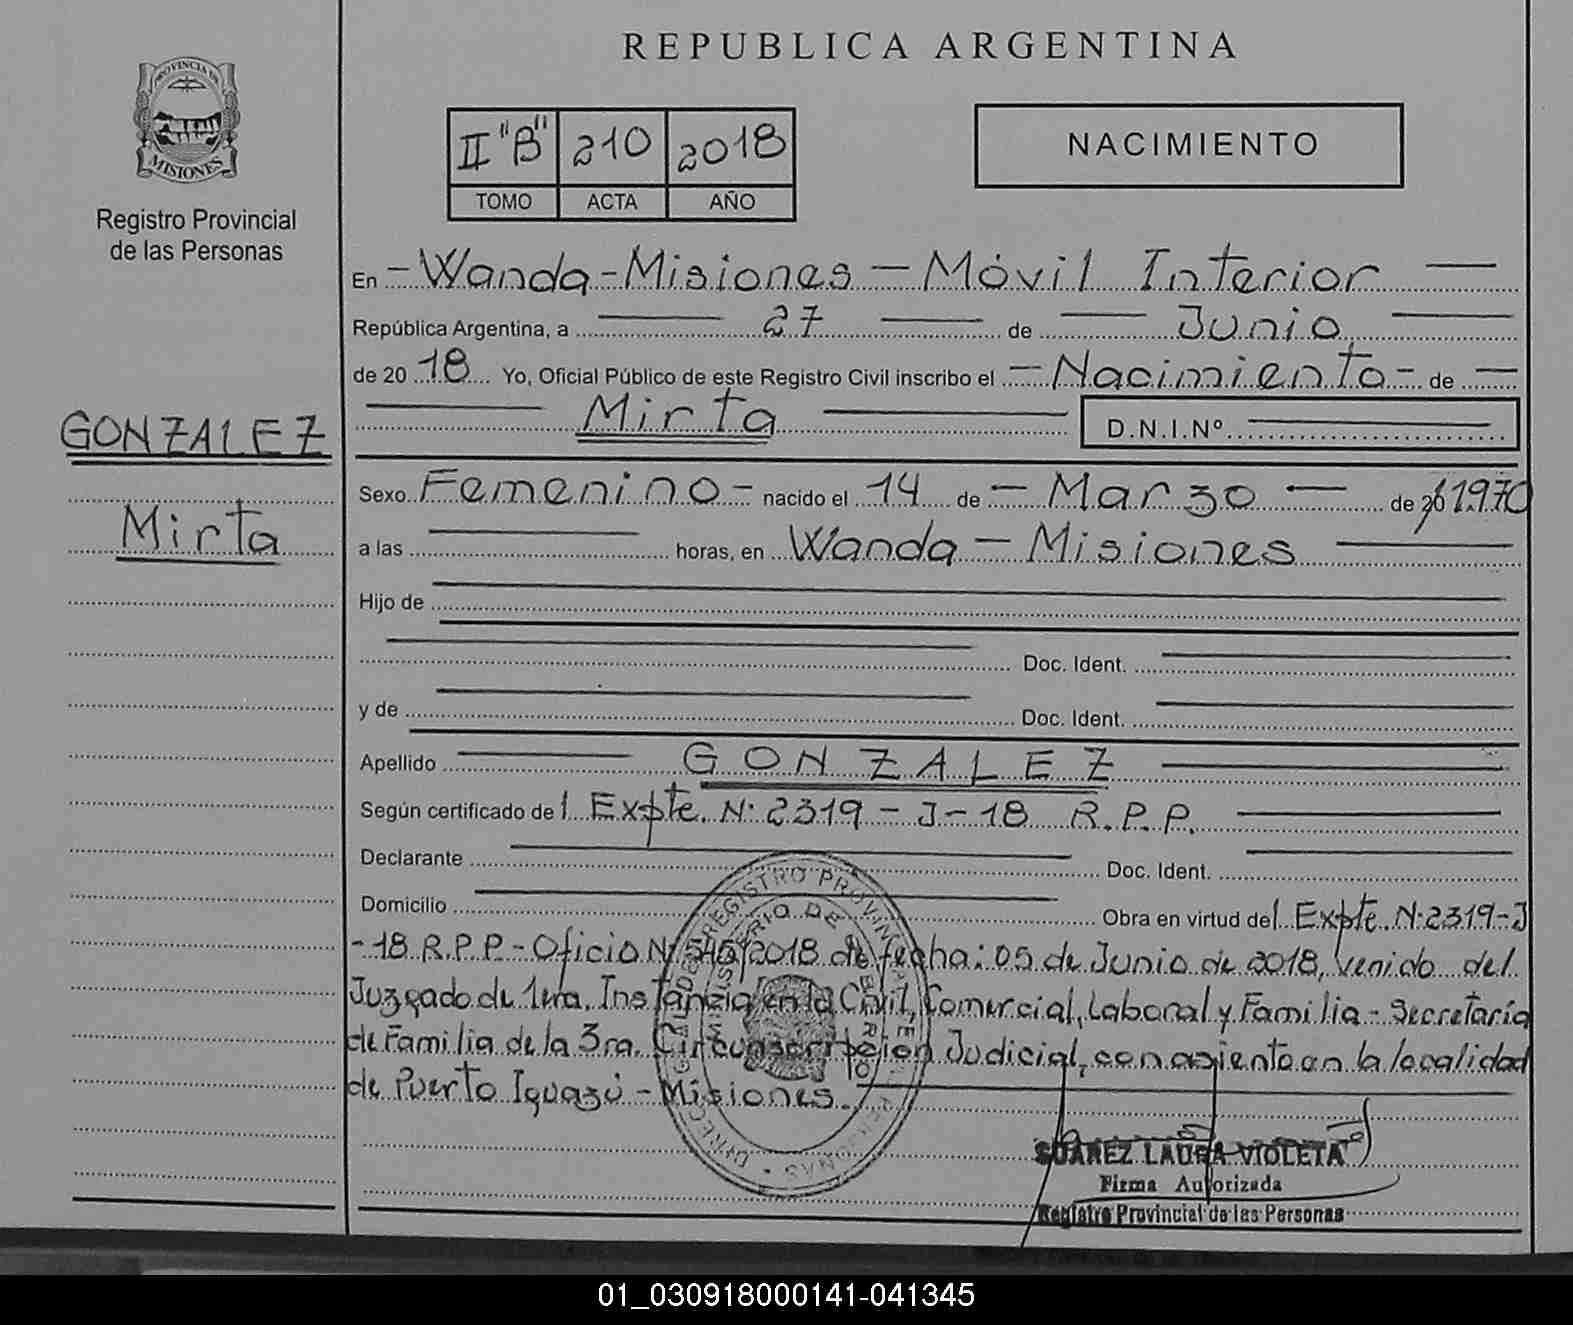 REPUBLICA ARGENTINA
PROVINCIA DE
MISIONES
Registro Provincial
de las Personas
II "B" 210 2018
TOMO ACTA AÑO
NACIMIENTO
En - Wanda - Misiones - Móvil Interior
República Argentina, a 27 de Junio
de 20 18 Yo, Oficial Público de este Registro Civil inscribo el - Nacimiento - de
Mirta D.N.I.Nº
GONZALEZ
Mirta
Sexo Femenino - nacido el 14 de - Marzo - de 20 1970
a las horas, en Wanda - Misiones
Hijo de
Doc. Ident.
y de Doc. Ident.
Apellido GONZALEZ
Según certificado de l Expte. N: 2319 - J - 18 R.P.P.
Declarante Doc. Ident.
Domicilio Obra en virtud del Expte. N: 2319 - J
- 18 R.P.P - Oficio Nº 545/2018 de fecha: 05 de Junio de 2018, venido del
Juzgado de 1era. Instancia en lo Civil, Comercial, Laboral y Familia - Secretaría
de Familia de la 3ra. Circunscripcion Judicial, con asiento en la localidad
de Puerto Iguazú - Misiones.
SUAREZ LAURA VIOLETA
Firma Autorizada
Registro Provincial de las Personas
01_030918000141-041345